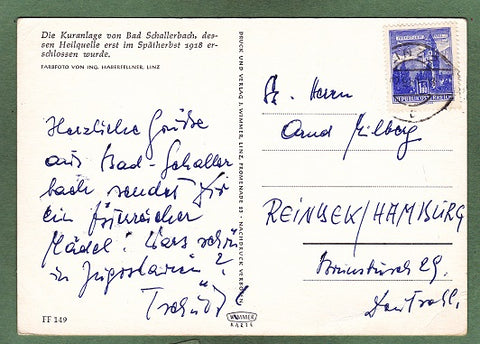 Die Kuranlage von Bad Schallerbach, des-
sen Heilquelle erst im Spätherbst 1918 er-
schlossen wurde.
FARBFOTO VON ING. HABERFELLNER, LINZ
Herzliche Grüße
aus Bad-Schaller
bach sendet Dir
ein
Mädel! Wars schön
in Jugoslawien?
FF 249
DRUCK UND VERLAG J. WIMMER, LINZ, PROMENADE 23 · NACHDRUCK VERBOTEN
WIMMER
KARTE
REPUBLIK ÖSTERREICH
Herrn
Arnd Milberg
REINBEK/HAMBURG
29.